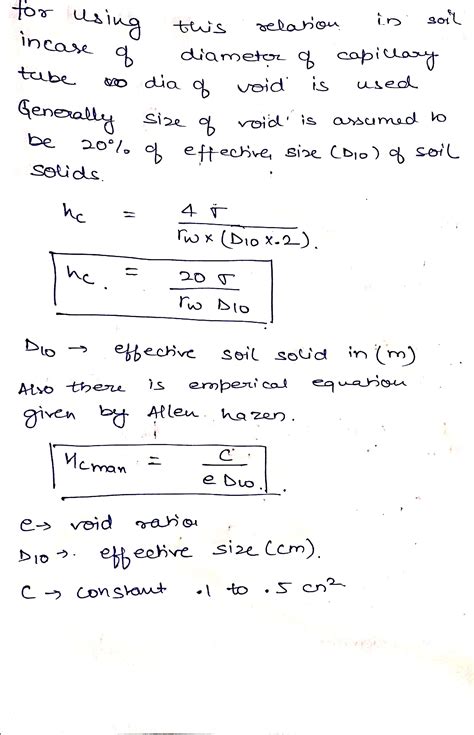 for using this relation in soil
incase of diameter of capillary
tube dia of void is used
Generally size of void is assumed to
be 20% of effective size (D10) of soil
solids.
hc = 4 σ / rw x (D10 x .2).
hc. = 20 σ / rw D10
D10 → effective soil solid in (m)
Also there is emperical equation
given by Allen hazen.
Hcman = C / e D10.
e → void ratio
D10 →. effective size (cm).
C → constant .1 to .5 cm2